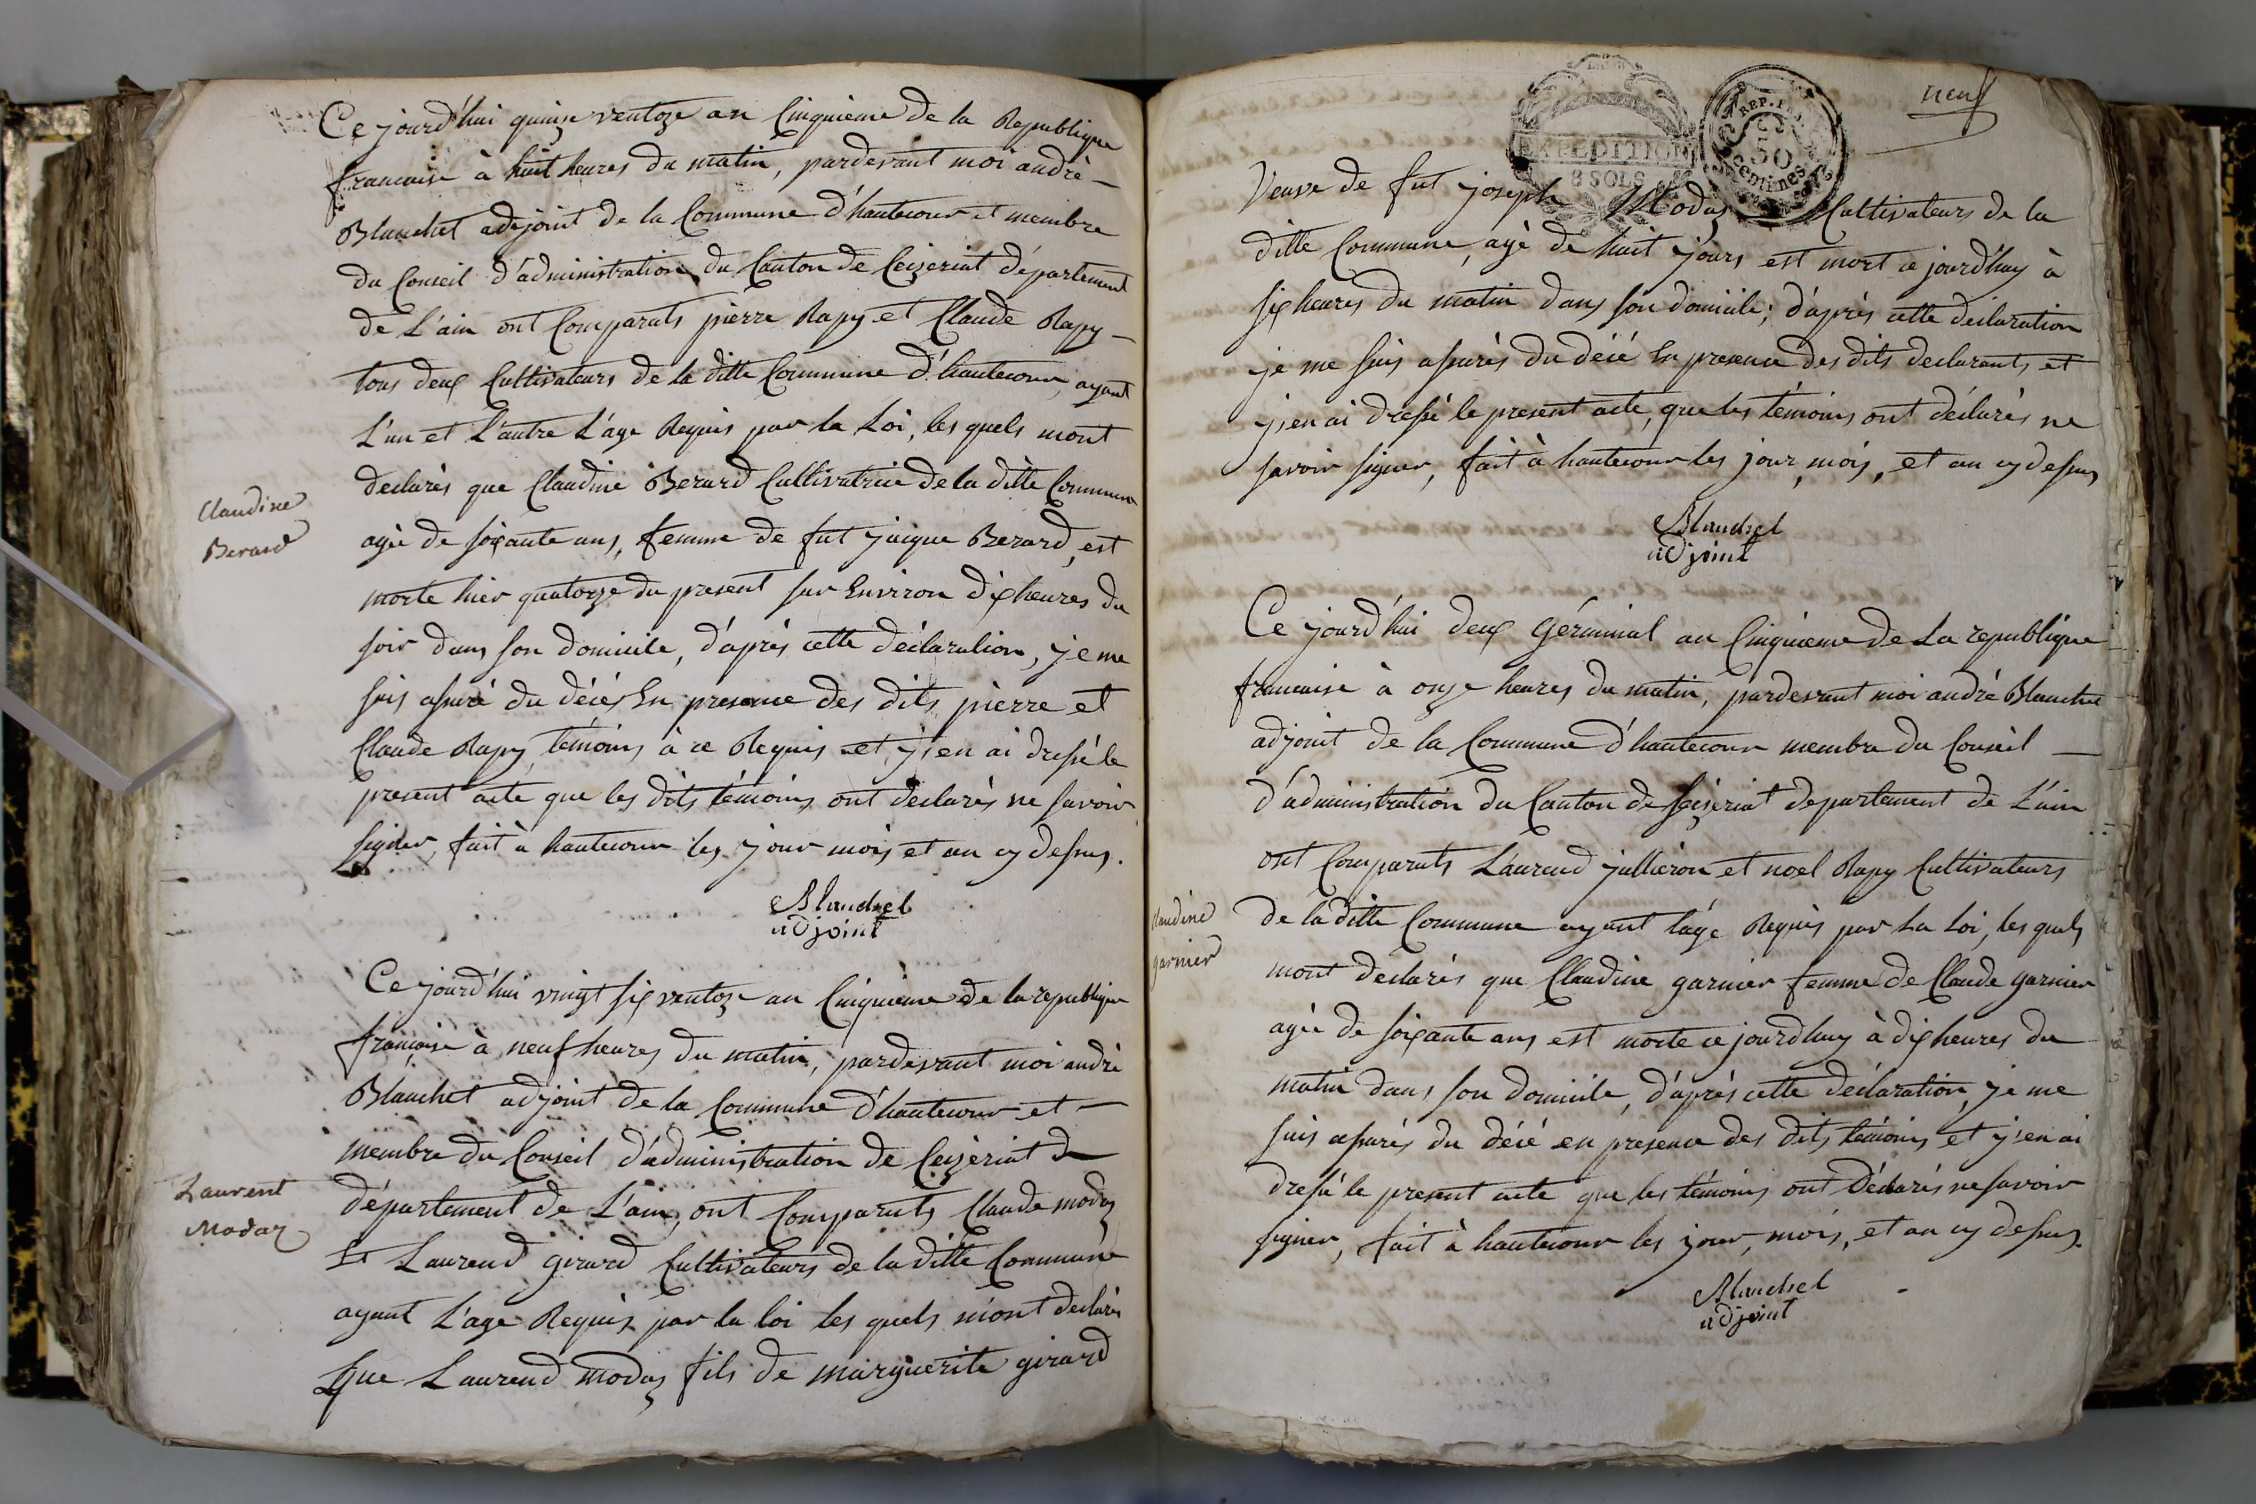 Ce jourd'hui quinze ventoze an Cinquieme de la Republique
francaise à huit heures du matin, pardevant moi andré
Blanchet adejoint de la Commune d'hautecour et membre
du Conseil d'administration du Canton de Ceizeriat département
de L'ain ont Comparuts pierre Rapy et Claude Rapy
tous deux Cultivateurs de la ditte Commune d'hautecour, ayant
L'un et L'autre L'age Requis par la Loi, les quels mont
declarés que Claudine Berard Cultivatrice de la ditte Commune
Claudine
Berard
agée de soixante ans, femme de fut jacque Berard, est
morte hier quatorze du present sur Environ dix heures du
soir dans son domicile, d'aprés cette déclaration, je me
suis assuré du décés En presence des dits pierre et
Claude Rapy témoins à ce Requis et j'en ai dressé le
present acte que les dits témoins ont declarés ne savoir
signer, fait à hautecour les jour mois et an cy dessus.
Blanchet
adjoint
Ce jourd'hui vingt six ventoze an Cinquieme de la republique
française à neuf heures du matin, pardevant moi andré
Blanchet adjoint de la Commune d'hautecour et
membre du Conseil d'administration de Ceizeriat
département de L'ain, ont Comparuts Claude modas
Laurent
Modaz
Et Laurend girard Cultivateurs de la ditte Commune
ayant L'age Requis par la loi les quels m'ont declarés
que Laurend modas fils de marguerite girard
neuf
EXPEDITION
8 SOLS
REP. FR.
50
Centimes
Veuve de fut joseph Modas Cultivateurs de la
ditte Commune, agé de huit jours est mort ce jourd'huy à
six heures du matin dans son domicile; d'aprés cette déclaration
je me suis assurés du décé En presence des dits declarants et
j'en ai dressé le present acte, que les témoins ont déclarés ne
savoir signer, fait à hautecour les jour, mois, et an cy dessus
Blanchet
adjoint
Ce jourd'hui deux Gérminal an Cinquieme de La republique
francaise à onze heures du matin, pardevant moi andré Blanchet
adjoint de la Commune d'hautecour membre du Conseil
d'administration du Canton de Ceizeriat departement de L'ain
ont Comparuts Laurend jullieron et noel Rapy Cultivateurs
Claudine
garnier
de la ditte Commune ayant l'age Requis par La Loi, les quels
mont declarés que Claudine garnier femme de Claude garnier
agée de soixante ans est morte ce jourdhuy à dix heures du
matin dans son domicile, d'aprés cette déclaration, je me
suis assurés du décé en presence des dits témoins et j'en ai
dressé le present acte que les témoins ont déclarés ne savoir
signer, fait à hautecour les jour, mois, et an cy dessus.
Blanchet
adjoint